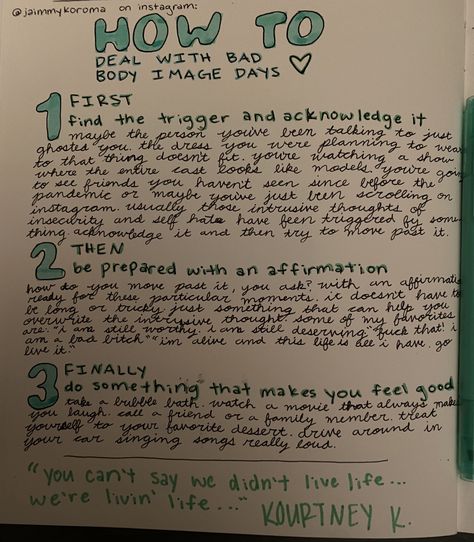 @jaimmykoroma on instagram:
HOW TO
DEAL WITH BAD
BODY IMAGE DAYS ♡
1 FIRST
find the trigger and acknowledge it
maybe the person you've been talking to just
ghosted you. the dress you were planning to wear
to that thing doesn't fit. you're watching a show
where the entire cast looks like models. you're going
to see friends you haven't seen since before the
pandemic or maybe you've just been scrolling on
instagram. usually those intrusive thoughts of
insecurity and self hate have been triggered by some-
thing. acknowledge it and then try to move past it.
2 THEN
be prepared with an affirmation
how do you move past it, you ask? with an affirmatio
ready for these particular moments. it doesn't have to
be long or tricky just something that can help you
overwrite the intrusive thought. some of my favorites
are: "i am still worthy. i am still deserving" "fuck that! i
am a bad bitch" "i'm alive and this life is all i have. go
live it."
3 FINALLY
do something that makes you feel good
take a bubble bath. watch a movie that always makes
you laugh. call a friend or a family member. treat
yourself to your favorite dessert. drive around in
your car singing songs really loud.
"you can't say we didn't live life...
we're livin' life..." KOURTNEY K.